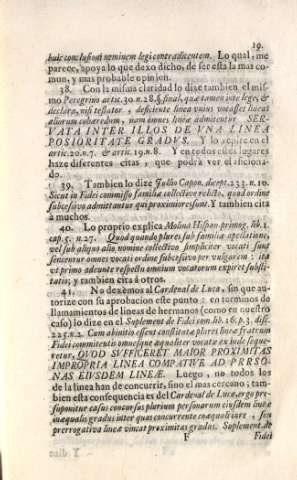 19.
huic conclusioni neminem legi contradicentem. Lo qual, me
parece, apoya lo que dexo dicho, de ser esta la mas co-
mun, y mas probable opinion.
38. Con la misma claridad lo dize tambien el mis-
mo Peregrino artic. 30. n. 28. §. final, quæ tamen intellige, &
declara, nisi testator
aliorum cohæredum, nam omnes lineæ admitentur SER-
VATA INTER ILLOS DE VNA LINEA
POSIORITATE GRADVS. Y lo repite en el
artic. 20. n. 7. & artic. 19. n. 8. Y en todos estos lugares
haze diferentes citas, que podrà ver el aficiona-
do.
39. Tambien lo dize Julio Capon. discept. 233. n. 10.
Sicut in Fidei commisso familiæ collective relicto, quod ordine
subcesivo admittantur qui proximiores sunt. Y tambien cita
à muchos.
40. Lo proprio explica Molina Hispan. primog. lib. 1.
cap. 5. n. 27. Quod quando plures sub familiæ apellatione,
vel sub aliquo alio nomine collectivo simpliciter vocati sunt
sencientur omnes vocati ordine subcesivo per vulgarem: ita
ut primo adeunte respectu omnium vocatorum expiret substi-
tutio; y tambien cita à otros.
41. No dexèmos al Cardenal de Luca, sin que au-
torize con su aprobacion este punto: en terminos de
llamamientos de lineas de hermanos (como en nuestro
caso) lo dize en el Suplement. de Fidei com. lib. 16. p. 3. disc.
225. n. 2. Cum ab initio essent constitutæ plures lineæ fratrum
Fidei commitentis omnesque æqualiter vocatæ ex inde seque-
retur, QVOD SVFFICERET MAIOR PROXIMITAS
IMPROPRIA LINEA COMPATIVE AD PERSO-
NAS EIVSDEM LINEÆ. Luego, no todos los
de la linea han de concurrir, sino el mas cercano; tam-
bien esta consequencia es del Cardenal de Luca, ergo præ-
suponitur casus concursus plurium personarum eiusdem lineæ
inæqualis gradus inter quas concurrente coæquali iure, seu
prerrogativa lineæ vincat proximitas gradus. Suplement. de
F Fidei